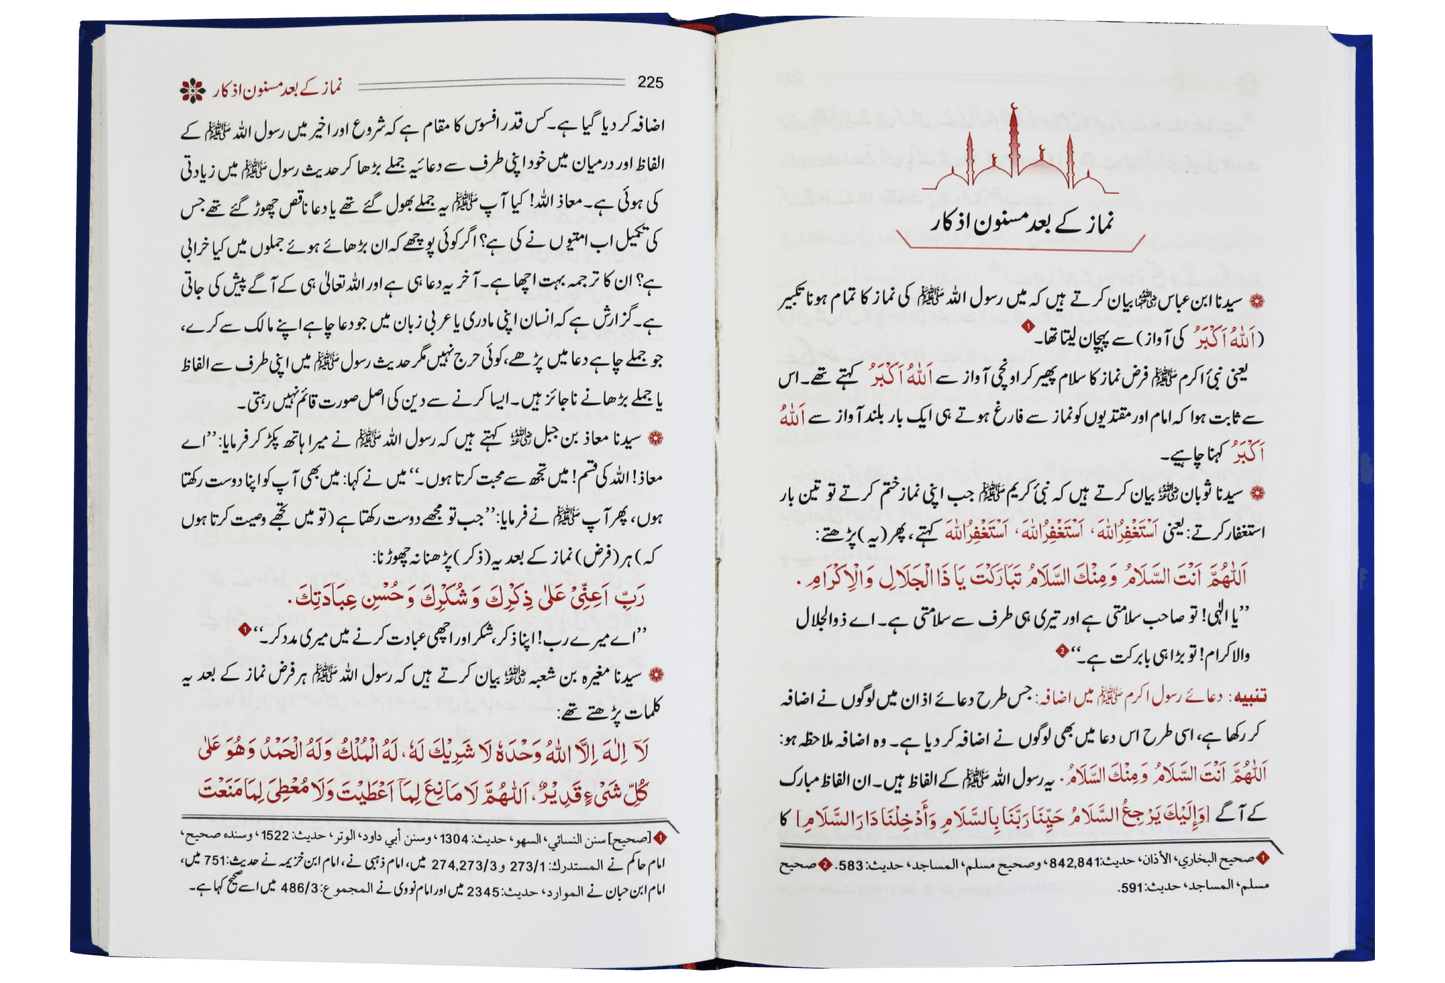 نماز کے بعد مسنون اذکار
سیدنا ابن عباس رضی اللہ عنہما بیان کرتے ہیں کہ میں رسول اللہ ﷺ کی نماز کا تمام ہونا تکبیر
(اَللّٰهُ اَكْبَرُ کی آواز) سے پہچان لیتا تھا۔ 1
یعنی نبیٔ اکرم ﷺ فرض نماز کا سلام پھیر کر اونچی آواز سے اَللّٰهُ اَكْبَرُ کہتے تھے۔ اس
سے ثابت ہوا کہ امام اور مقتدیوں کو نماز سے فارغ ہوتے ہی ایک بار بلند آواز سے اَللّٰهُ
اَكْبَرُ کہنا چاہیے۔
سیدنا ثوبان رضی اللہ عنہ بیان کرتے ہیں کہ نبیٔ کریم ﷺ جب اپنی نماز ختم کرتے تو تین بار
استغفار کرتے: یعنی اَسْتَغْفِرُاللهَ، اَسْتَغْفِرُاللهَ، اَسْتَغْفِرُاللهَ کہتے، پھر (یہ) پڑھتے:
اَللّٰهُمَّ اَنْتَ السَّلَامُ وَمِنْكَ السَّلَامُ تَبَارَكْتَ يَا ذَا الْجَلَالِ وَالْاِكْرَامِ.
’’یا الٰہی! تو صاحب سلامتی ہے اور تیری ہی طرف سے سلامتی ہے۔ اے ذوالجلال
والاکرام! تو بڑا ہی بابرکت ہے۔‘‘ 2
تنبیہ: دعائے رسول اکرم ﷺ میں اضافہ: جس طرح دعائے اذان میں لوگوں نے اضافہ
کر رکھا ہے، اسی طرح اس دعا میں بھی لوگوں نے اضافہ کر دیا ہے۔ وہ اضافہ ملاحظہ ہو:
اَللّٰهُمَّ اَنْتَ السَّلَامُ وَمِنْكَ السَّلَامُ. یہ رسول اللہ ﷺ کے الفاظ ہیں۔ ان الفاظ مبارک
کے آگے [وَإِلَيْكَ يَرْجِعُ السَّلَامُ حَيِّنَا رَبَّنَا بِالسَّلَامِ وَأَدْخِلْنَا دَارَ السَّلَامِ] کا
1 صحيح البخاري، الأذان، حديث: 842,841، وصحيح مسلم، المساجد، حديث: 583. 2 صحيح
مسلم، المساجد، حديث: 591.
225 نماز کے بعد مسنون اذکار
اضافہ کر دیا گیا ہے۔ کس قدر افسوس کا مقام ہے کہ شروع اور اخیر میں رسول اللہ ﷺ کے
الفاظ اور درمیان میں خود اپنی طرف سے دعائیہ جملے بڑھا کر حدیث رسول ﷺ میں زیادتی
کی ہوئی ہے۔ معاذ اللہ! کیا آپ ﷺ یہ جملے بھول گئے تھے یا دعا ناقص چھوڑ گئے تھے جس
کی تکمیل اب امتیوں نے کی ہے؟ اگر کوئی پوچھے کہ ان بڑھائے ہوئے جملوں میں کیا خرابی
ہے؟ ان کا ترجمہ بہت اچھا ہے۔ آخر یہ دعا ہی ہے اور اللہ تعالیٰ ہی کے آگے پیش کی جاتی
ہے۔ گزارش ہے کہ انسان اپنی مادری یا عربی زبان میں جو دعا چاہے اپنے مالک سے کرے،
جو جملے چاہے دعا میں پڑھے، کوئی حرج نہیں مگر حدیث رسول ﷺ میں اپنی طرف سے الفاظ
یا جملے بڑھانے ناجائز ہیں۔ ایسا کرنے سے دین کی اصل صورت قائم نہیں رہتی۔
سیدنا معاذ بن جبل رضی اللہ عنہ کہتے ہیں کہ رسول اللہ ﷺ نے میرا ہاتھ پکڑ کر فرمایا: ’’اے
معاذ! اللہ کی قسم! میں تجھ سے محبت کرتا ہوں۔‘‘ میں نے کہا: میں بھی آپ کو اپنا دوست رکھتا
ہوں، پھر آپ ﷺ نے فرمایا: ’’جب تو مجھے دوست رکھتا ہے (تو میں تجھے وصیت کرتا ہوں
کہ) ہر (فرض) نماز کے بعد یہ (ذکر) پڑھنا نہ چھوڑنا:
رَبِّ اَعِنِّیْ عَلٰی ذِكْرِكَ وَشُكْرِكَ وَحُسْنِ عِبَادَتِكَ.
’’اے میرے رب! اپنا ذکر، شکر اور اچھی عبادت کرنے میں میری مدد کر۔‘‘ 1
سیدنا مغیرہ بن شعبہ رضی اللہ عنہ بیان کرتے ہیں کہ رسول اللہ ﷺ ہر فرض نماز کے بعد یہ
کلمات پڑھتے تھے:
لَآ اِلٰهَ اِلَّا اللّٰهُ وَحْدَهٗ لَا شَرِيْكَ لَهٗ، لَهُ الْمُلْكُ وَلَهُ الْحَمْدُ وَهُوَ عَلٰى
كُلِّ شَيْءٍ قَدِيْرٌ، اَللّٰهُمَّ لَا مَانِعَ لِمَآ اَعْطَيْتَ وَلَا مُعْطِيَ لِمَا مَنَعْتَ
1 [صحيح] سنن النسائي، السهو، حديث: 1304، وسنن أبي داود، الوتر، حديث: 1522، وسنده صحيح،
امام حاکم نے المستدرك: 273/1 و 274,273/3 میں، امام ذہبی نے، امام ابن خزیمہ نے حدیث: 751 میں،
امام ابن حبان نے الموارد، حدیث: 2345 میں اور امام نووی نے المجموع: 486/3 میں اسے صحیح کہا ہے۔